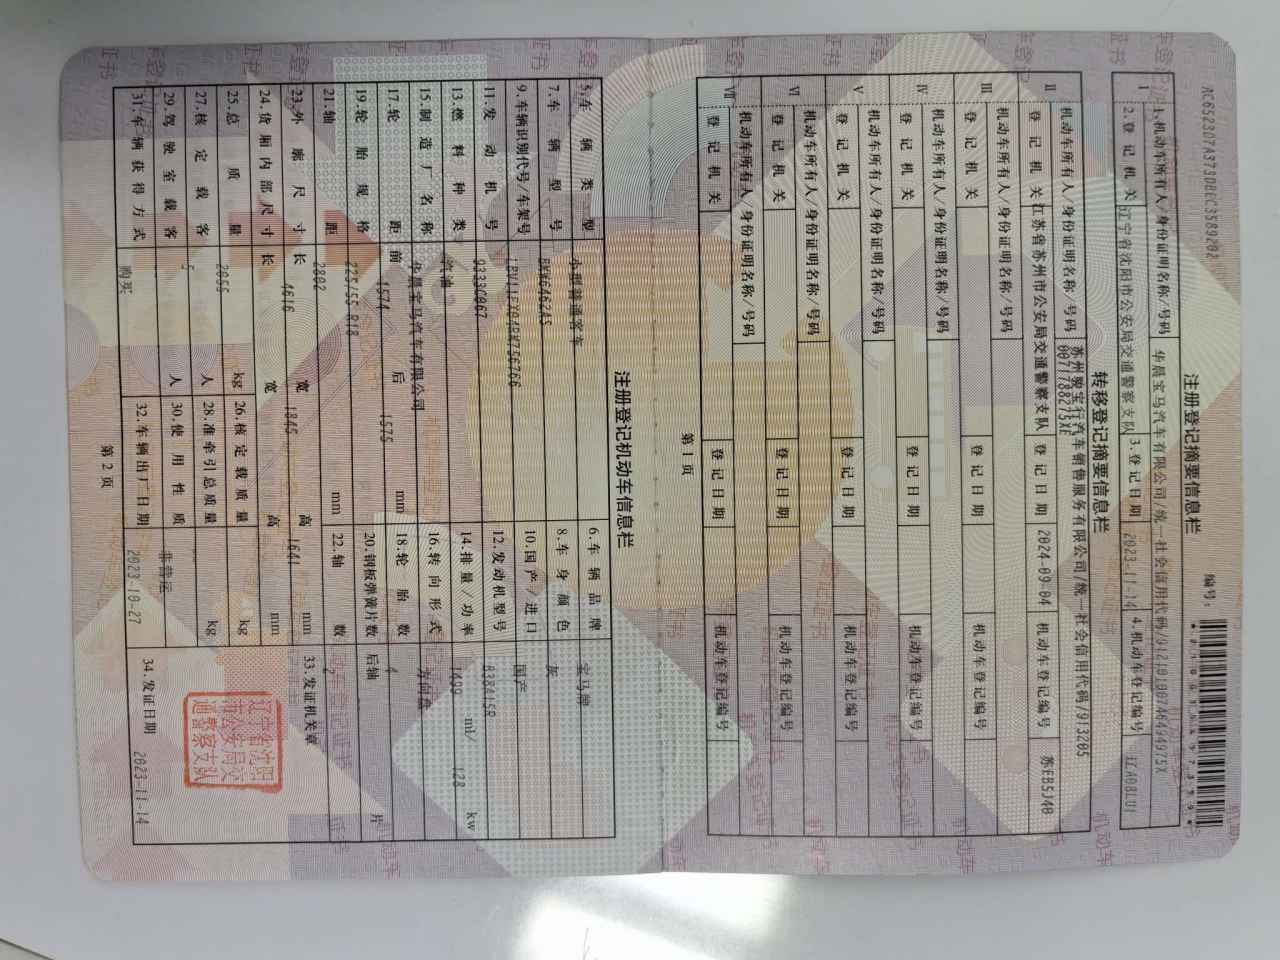 AC652307A373DBEC3589202
编号:
注册登记摘要信息栏
Ⅰ 1.机动车所有人/身份证明名称/号码 华晨宝马汽车有限公司/统一社会信用代码/
2.登记机关 辽宁省沈阳市公安局交通警察支队 3.登记日期 2023-11-14 4.机动车登记编号 辽A08LU1
转移登记摘要信息栏
Ⅱ 机动车所有人/身份证明名称/号码 苏州骏宝行汽车销售服务有限公司/统一社会信用代码/913205
登记机关 江苏省苏州市公安局交通警察支队 登记日期 2024-09-04 机动车登记编号 苏FB5J40
Ⅲ 机动车所有人/身份证明名称/号码
登记机关 登记日期 机动车登记编号
Ⅳ 机动车所有人/身份证明名称/号码
登记机关 登记日期 机动车登记编号
Ⅴ 机动车所有人/身份证明名称/号码
登记机关 登记日期 机动车登记编号
Ⅵ 机动车所有人/身份证明名称/号码
登记机关 登记日期 机动车登记编号
Ⅶ 机动车所有人/身份证明名称/号码
登记机关 登记日期 机动车登记编号
第1页
注册登记机动车信息栏
5.车辆类型 小型普通客车 6.车辆品牌 宝马牌
7.车辆型号 8.车身颜色 灰
9.车辆识别代号/车架号 10.国产/进口 国产
11.发动机号 9333C067 12.发动机型号 B38A15R
13.燃料种类 汽油 14.排量/功率 1499 ml/ 128 kw
15.制造厂名称 华晨宝马汽车有限公司 16.转向形式 方向盘
17.轮距 前 1574 后 1575 mm 18.轮胎数 4
19.轮胎规格 225/55 R18 20.钢板弹簧片数 后轴 片
21.轴距 2802 mm 22.轴数 2
23.外廓尺寸 长 4616 宽 1845 高 1641 mm 33.发证机关章
24.货厢内部尺寸 长 宽 高 mm
25.总质量 2055 kg 26.核定载质量 kg
27.核定载客 5 人 28.准牵引总质量 kg
29.驾驶室载客 人 30.使用性质 非营运
31.车辆获得方式 购买 32.车辆出厂日期 2023-10-27 34.发证日期 2023-11-14
辽宁省沈阳
市公安局交
通警察支队
第2页